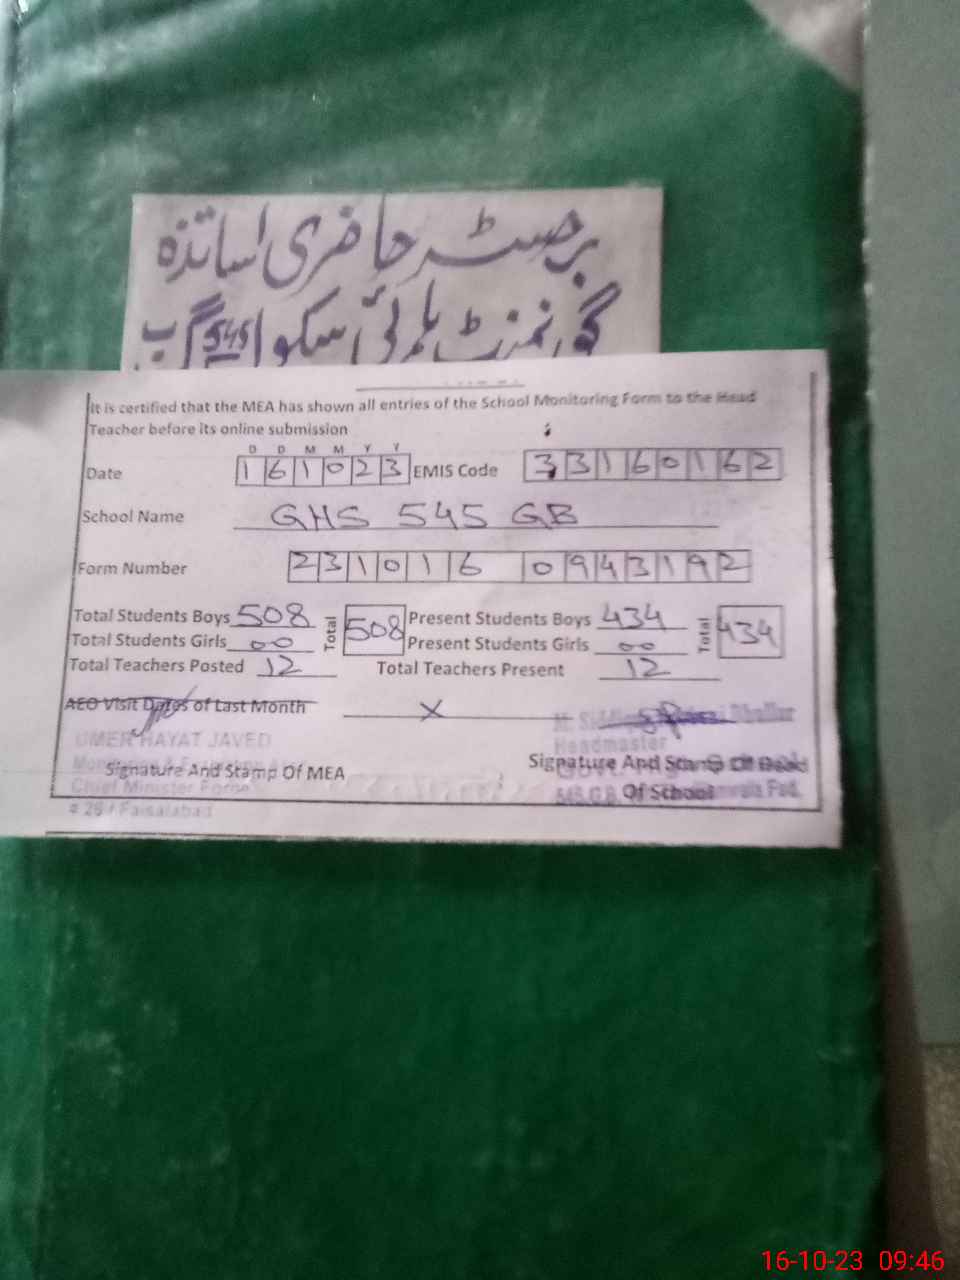 رجسٹر حاضری اساتذہ
گورنمنٹ ہائی سکول 545 گ ب
It is certified that the MEA has shown all entries of the School Monitoring Form to the Head
Teacher before its online submission
D D M M Y Y
Date 161023 EMIS Code 33160162
School Name GHS 545 GB
Form Number 231016 0943192
Total Students Boys 508 Total 508 Present Students Boys 434 Total 434
Total Students Girls 00 Present Students Girls 00
Total Teachers Posted 12 Total Teachers Present 12
AEO Visit Dates of Last Month X
UMER HAYAT JAVED
Headmaster
Signature And Stamp Of MEA Signature And Stamp Of Head
Chief Minister
Of School
# 26 / Faisalabad
16-10-23 09:46